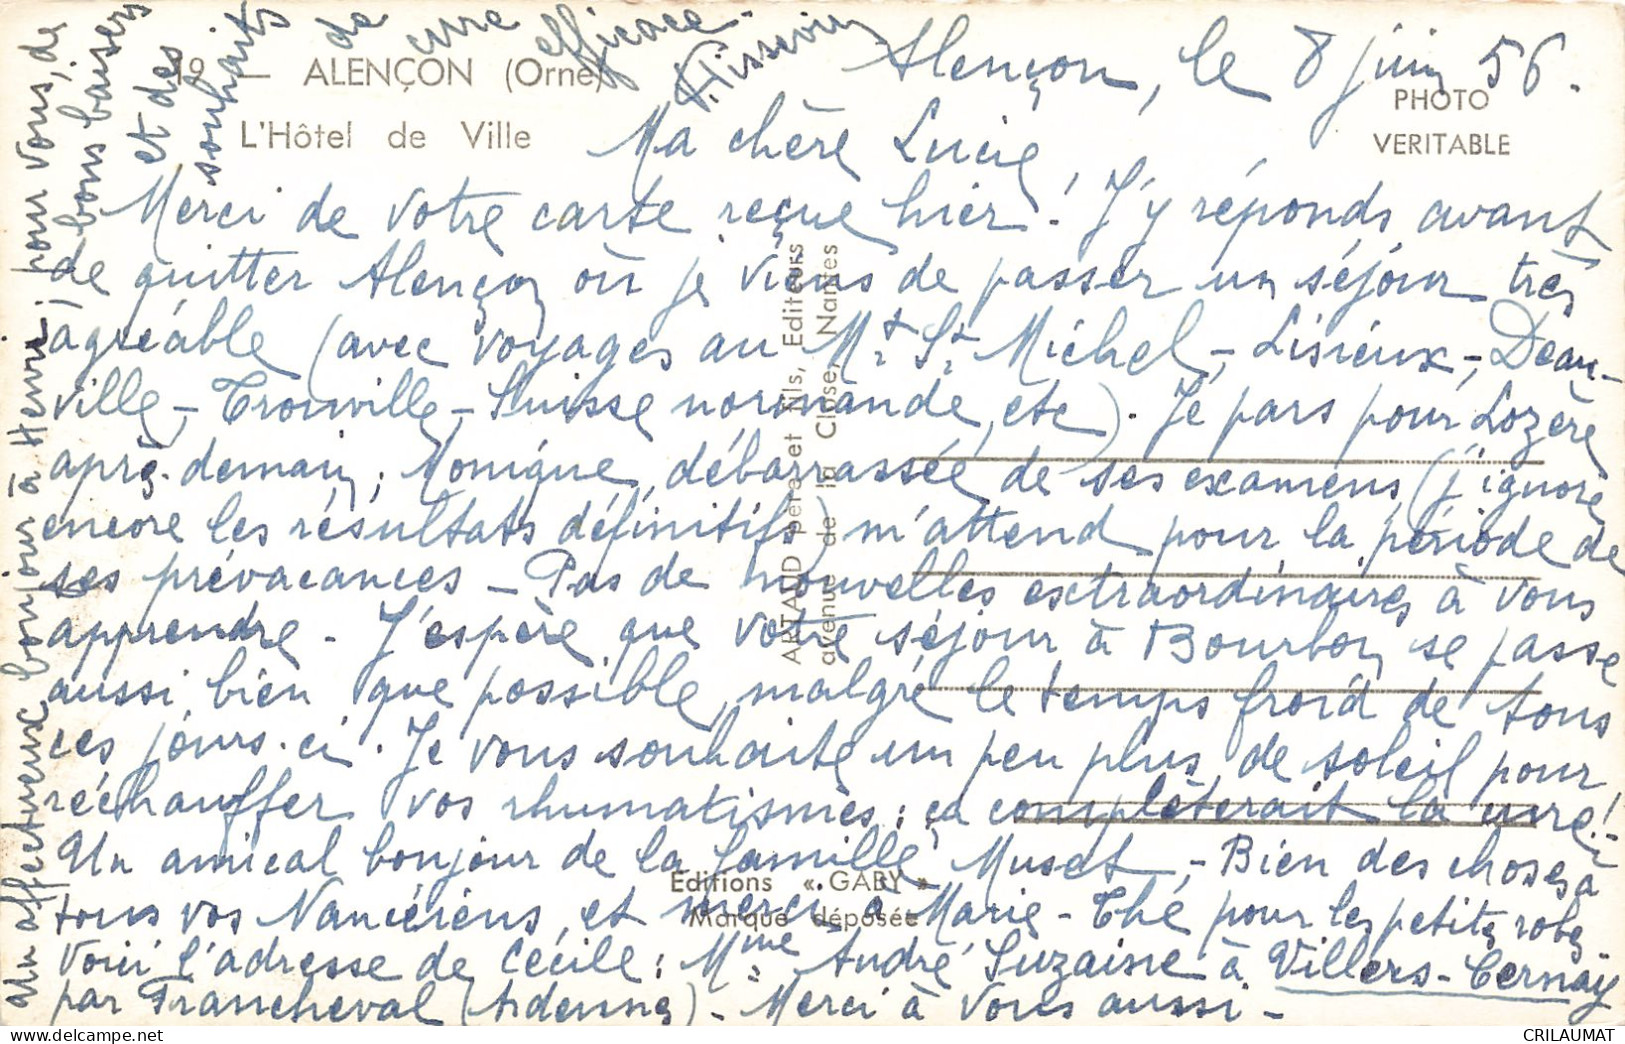 19 — ALENÇON (Orne)
L'Hôtel de Ville
PHOTO
VERITABLE
Alençon, le 8 juin 56.
Ma chère Lucie,
Merci de votre carte reçue hier ! J'y réponds avant
de quitter Alençon où je viens de passer un séjour très
agréable (avec voyages au Mt. St. Michel - Lisieux - Deau-
ville - Trouville - Suisse normande, etc). Je pars pour Lozère
après-demain ; Monique, débarrassée de ses examens (j'ignore
encore les résultats définitifs) m'attend pour la période de
ses prévacances - Pas de nouvelles extraordinaires à vous
apprendre - J'espère que votre séjour à Bourbon se passe
aussi bien que possible, malgré le temps froid de tous
ces jours-ci. Je vous souhaite un peu plus de soleil pour
réchauffer vos rhumatismes : ça complèterait la cure ! -
Un amical bonjour de la famille Muset, - Bien des choses à
tous vos Nancéiens, et merci à Marie-Thé pour les petites robes
Voici l'adresse de Cécile : Mme André Suzaine à Villers-Cernay
par Francheval (Ardennes) - Merci à vous aussi -
Un affectueux bonjour à Henri ; pour vous, de
bons baisers
et des
souhaits
de cure efficace -
ARTAUD père et fils, Editeurs
avenue de la Close, Nantes
Editions « GABY »
Marque déposée
CRILAUMAT